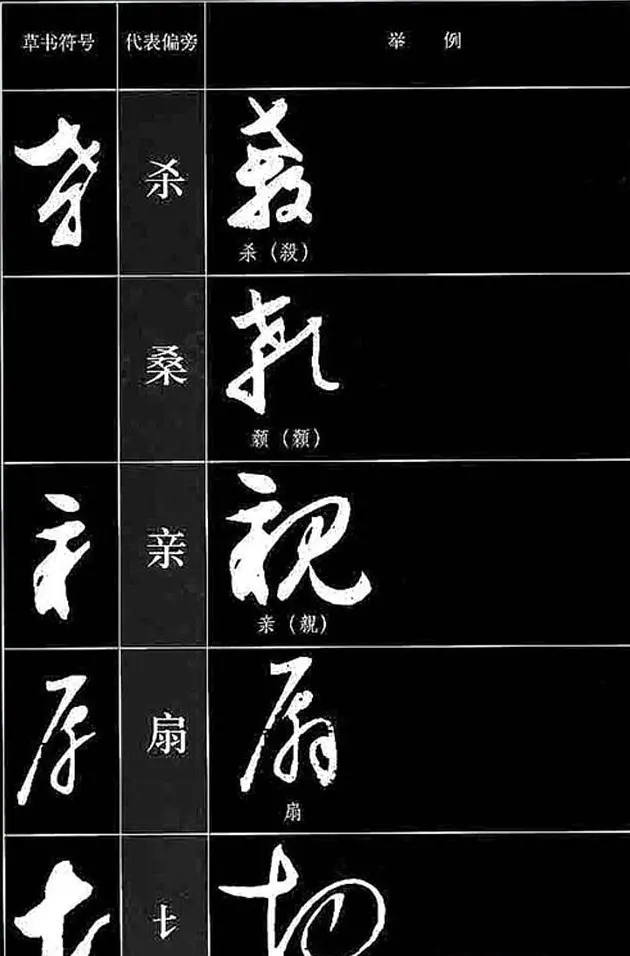 草书符号 代表偏旁 举 例
杀
杀（殺）
桑
颡（顙）
亲
亲（親）
扇
扇